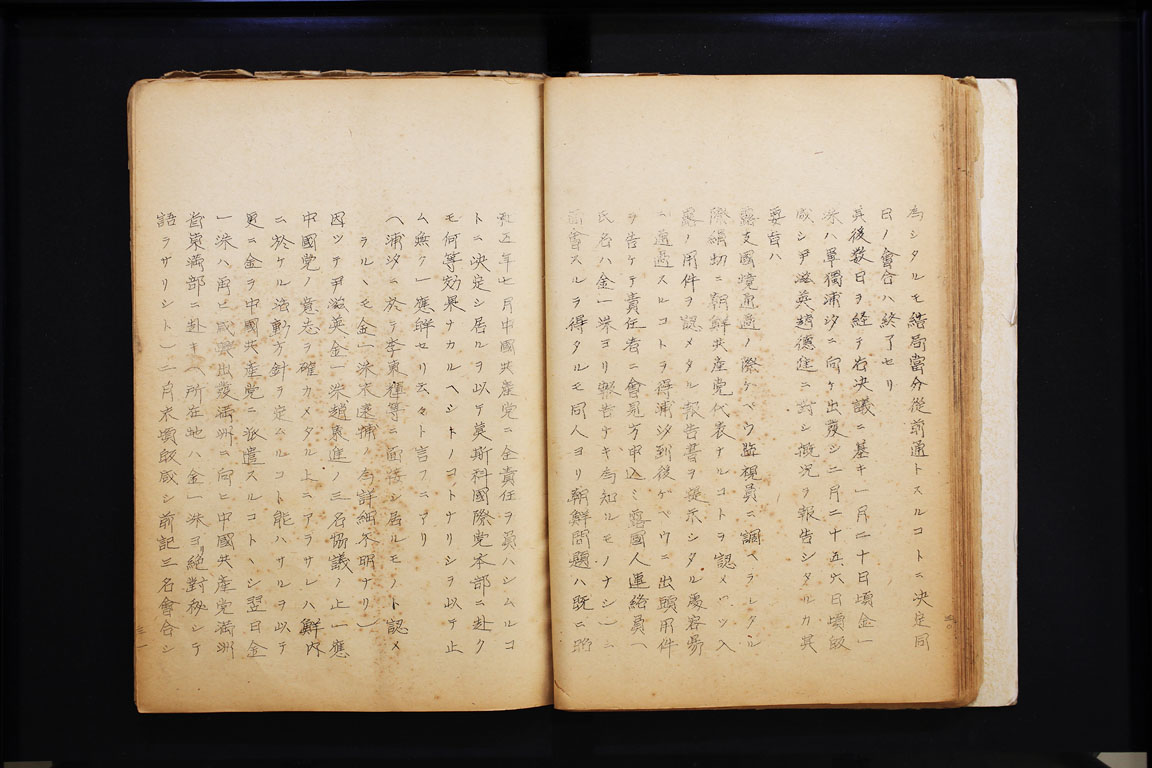 為シタルモ結局当分従前通トスルコトニ決定同
日ノ會合ハ終了セリ
其後数日ヲ経テ右決議ニ基キ一月二十日頃金一
洙ハ單獨浦汐ニ向ケ出発シ二月二十五六日頃帰
咸シ尹滋英趙德進ニ対シ概況ヲ報告シタルカ其
要旨ハ
露支國境通過ノ際ゲペウ監視員ニ調ベラレタル
際續切ニ朝鮮共産党代表ナルコトヲ認メツヽ入
露ノ用件ヲ認メタル報告書ヲ提示シタル處容易
ニ通過スルコトヲ得浦汐到後ゲペウニ出頭用件
ヲ告ケテ責任者ニ會見方申込ミ露國人連絡員(
氏名ハ金一洙ヨリ報告ナキ為知ルモノナシ)ニ
面會スルヲ得タルモ同人ヨリ朝鮮問題ハ既ニ昭
和五年七月中國共産党ニ全責任ヲ負ハシムルコ
トニ決定シ居ルヲ以テ莫斯科國際党本部ニ赴ク
モ何等効果ナカルヘシトノコトナリシヲ以テ止
ム無ク一應辞セリ云々ト言フニアリ
(浦汐ニ於テ李東輝等ニ面接シ居ルモノト認メ
ラルヽモ金一洙未逮捕ノ為詳細不明ナリ)
因ッテ尹滋英金一洙趙德進ノ三名協議ノ上一應
中國党ノ意志ヲ確カメタル上ニアラサレハ鮮内
ニ於ケル活動方針ヲ定ムルコト能ハサルヲ以テ
更ニ金ヲ中國共産党ニ派遣スルコトヽシ翌日金
一洙ハ再ヒ咸興出発満洲ニ向ヒ中國共産党満洲
省東満部ニ赴キ(所在地ハ金一洙ヨリ絶対秘シテ
語ラザリシト)二月末頃帰咸シ前記三名會合シ
三一